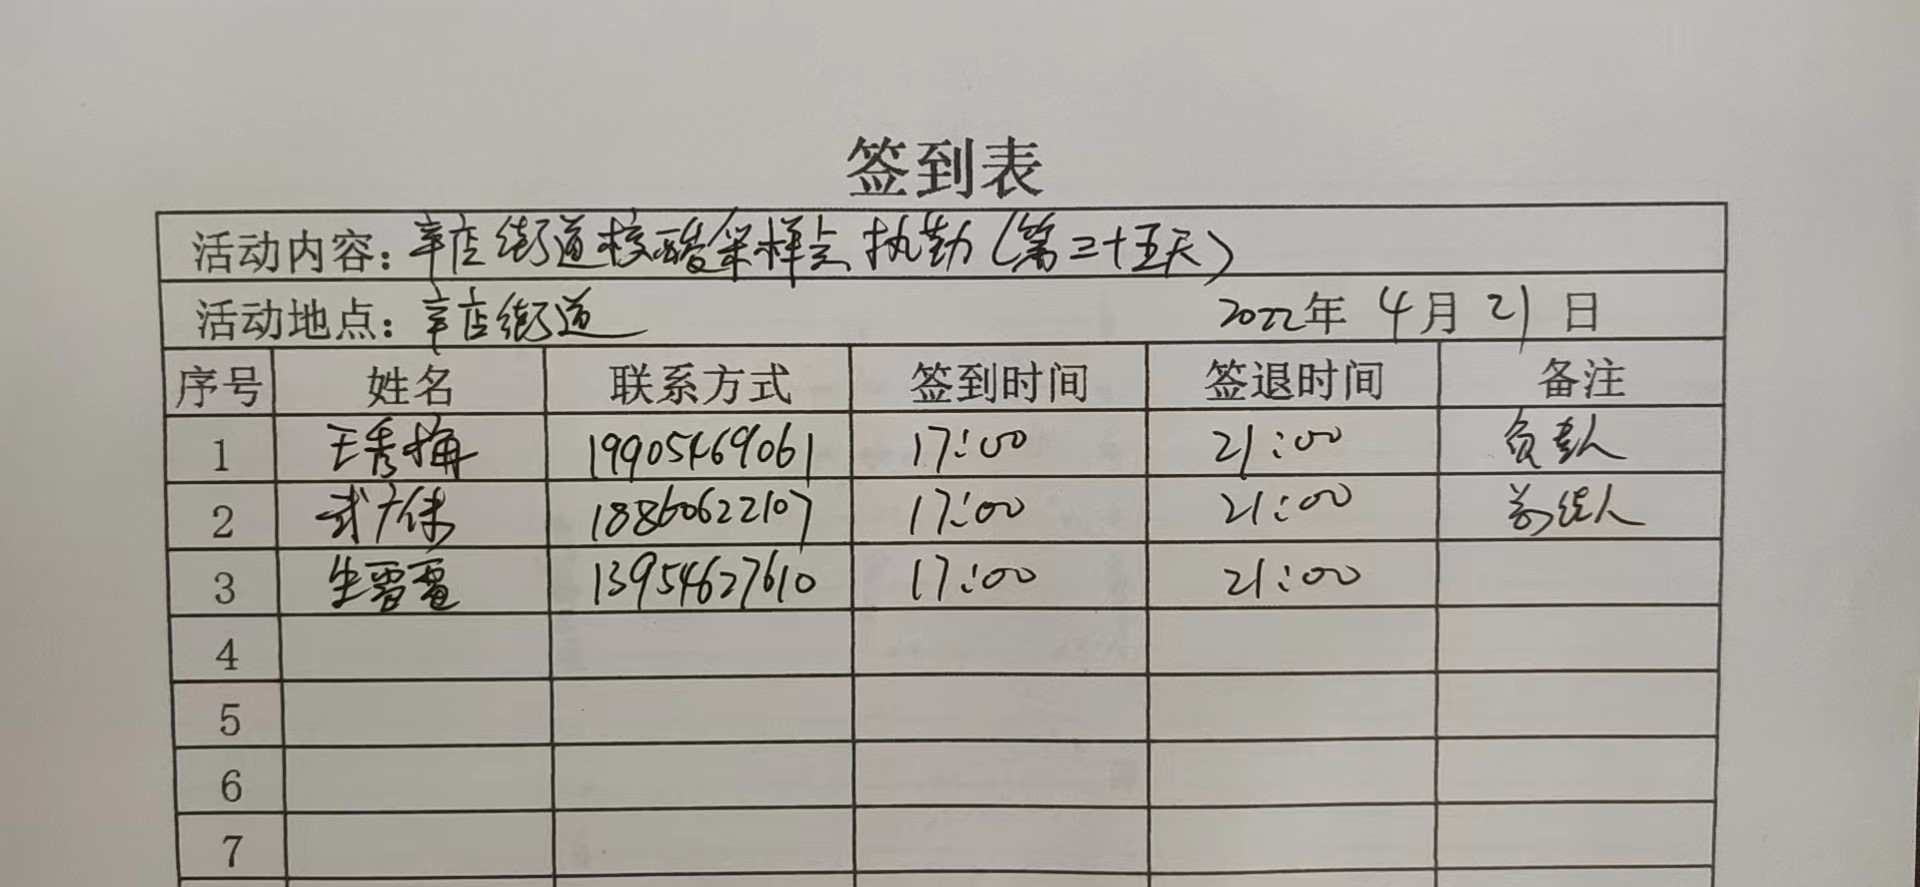 签到表
活动内容：辛店街道核酸采样点执勤（第三十五天）
活动地点：辛店街道 2022年 4月 21 日
序号 姓名 联系方式 签到时间 签退时间 备注
1 王秀梅 19905469061 17:00 21:00 负责人
2 武广伟 18860622107 17:00 21:00
3 生雷雷 13954627610 17:00 21:00
4
5
6
7